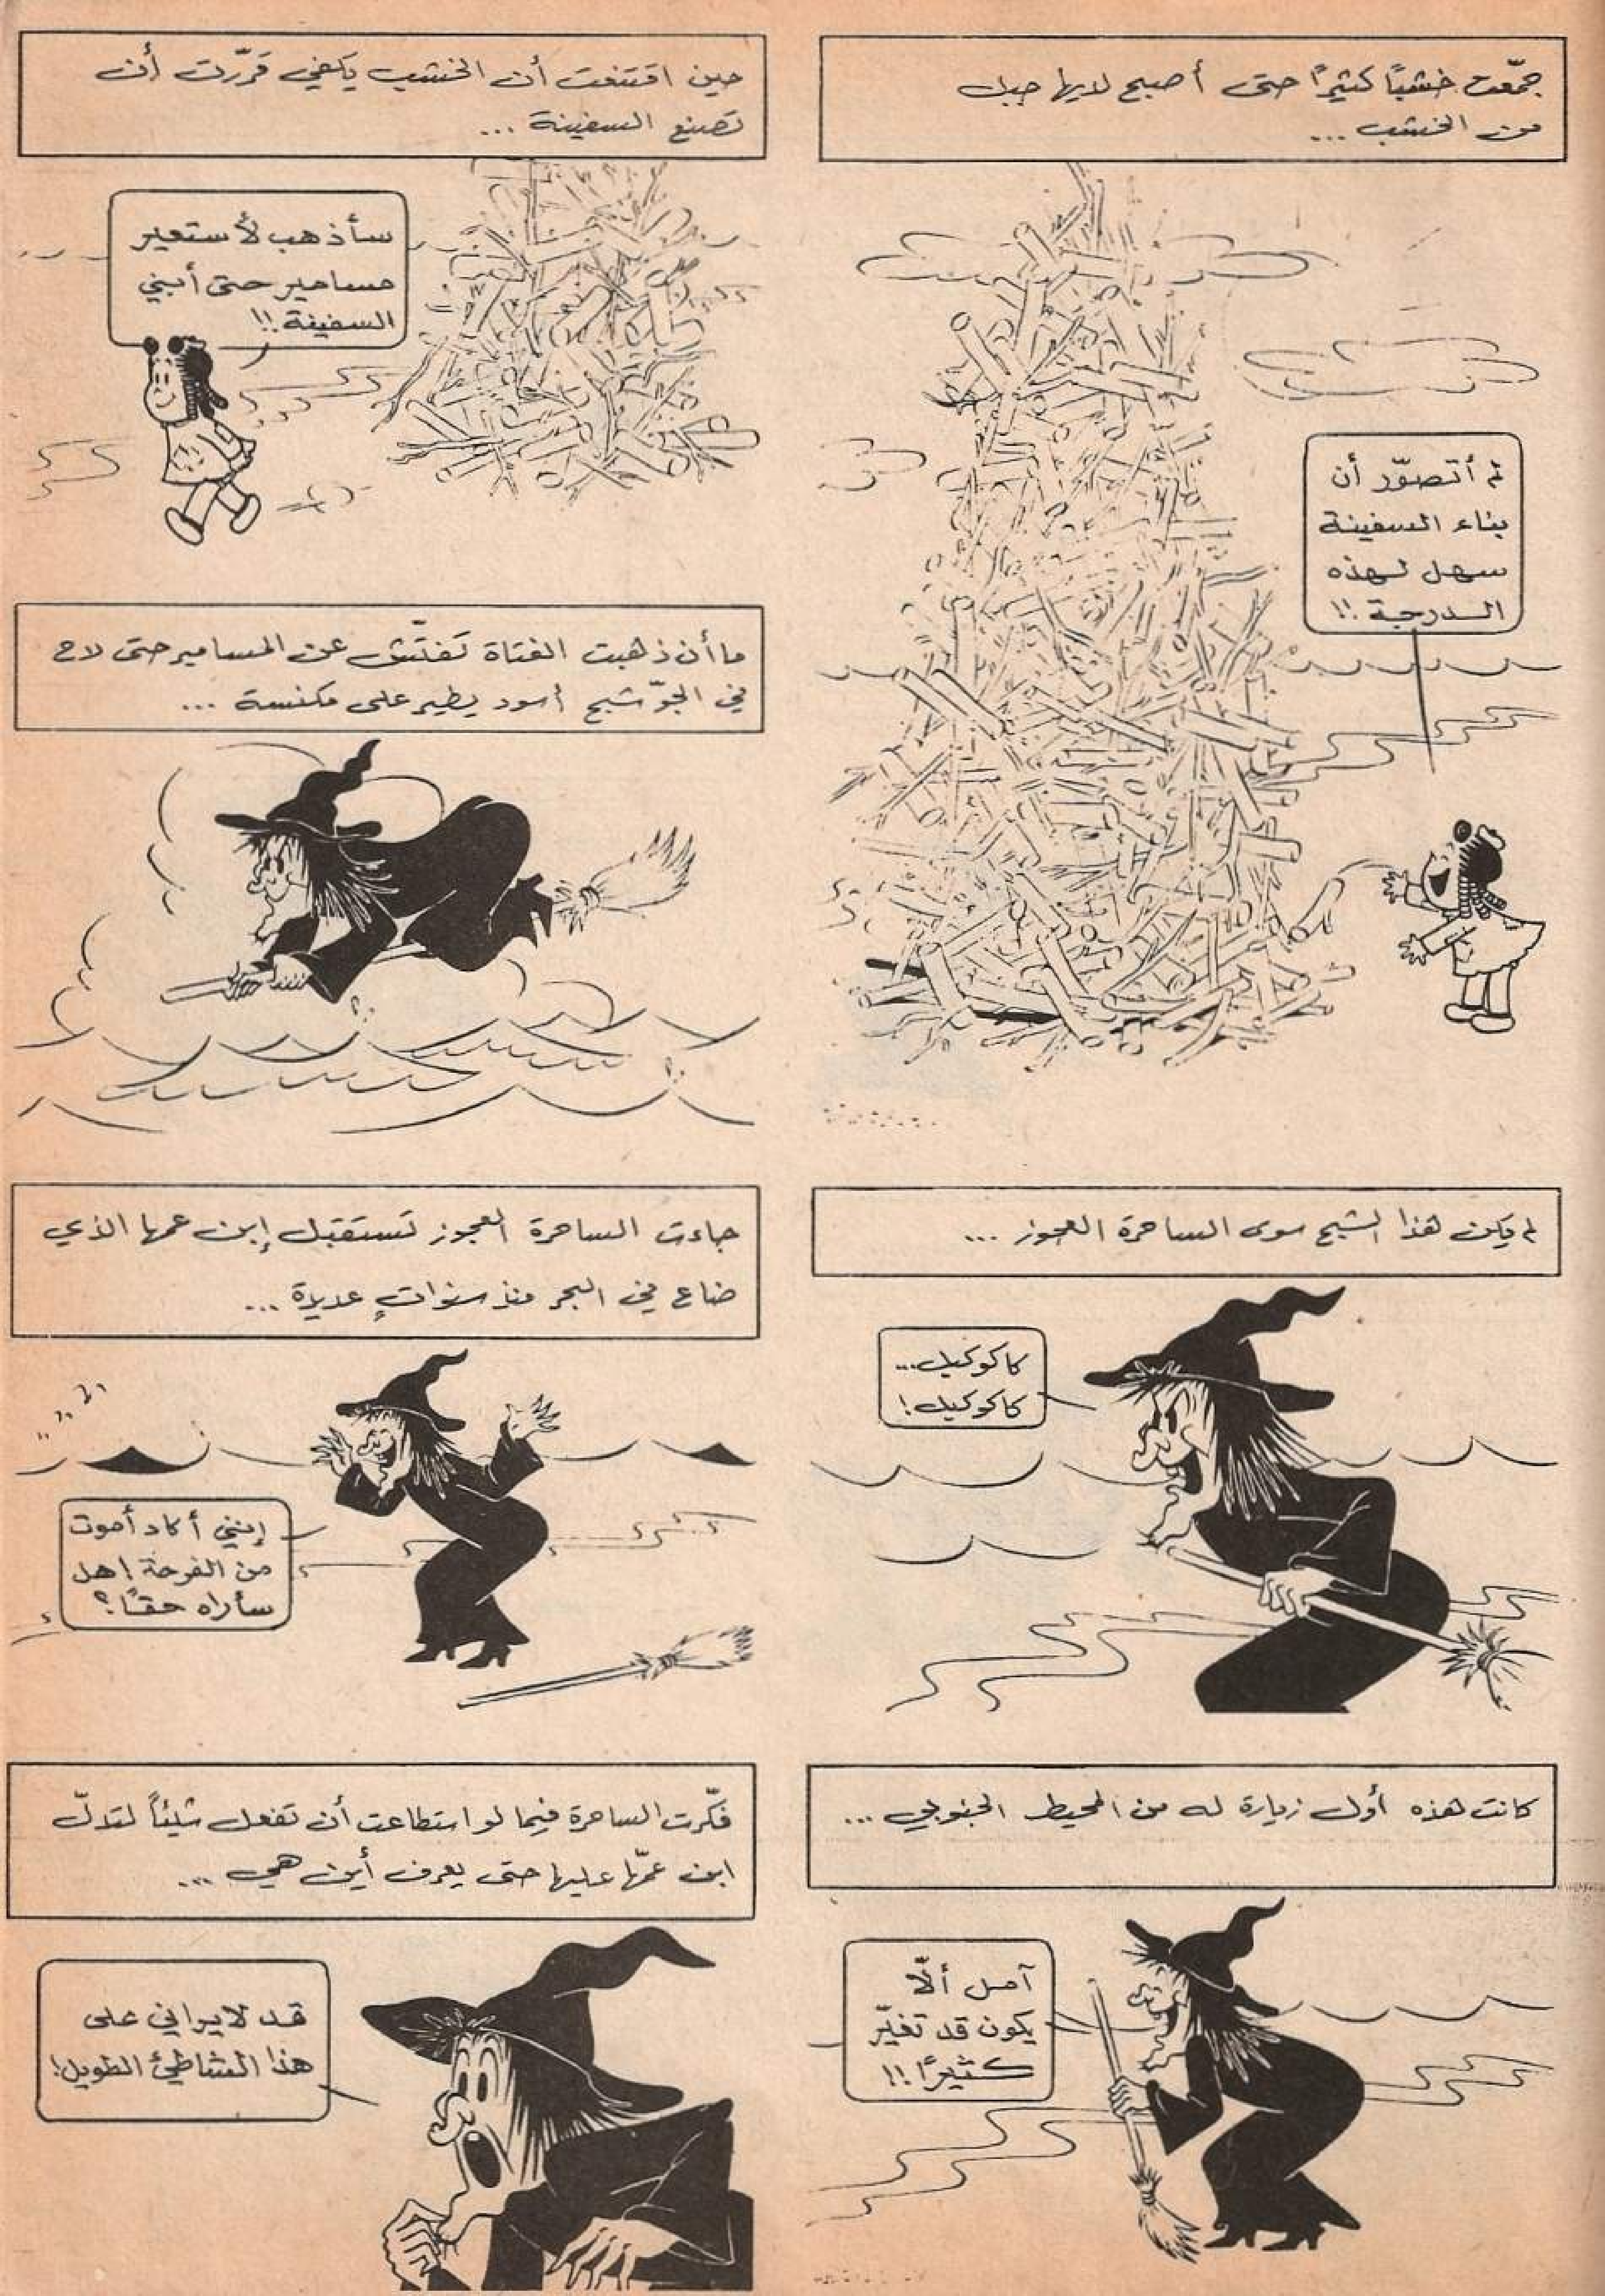 جمّعت خشبًا كثيرًا حتى أصبح لديها جبل
من الخشب ...
لم أتصوّر أن
بناء السفينة
سهل لهذه
الدرجة !!
حين اقتنعت أن الخشب يكفي قرّرت أن
تصنع السفينة ...
سأذهب لأستعير
مسامير حتى أبني
السفينة !!
ما أن ذهبت الفتاة تفتّش عن المسامير حتى لاح
في الجوّ شبح أسود يطير على مكنسة ...
لم يكن هذا الشبح سوى الساحرة العجوز ...
كاكوكيل...
كاكوكيل!
جاءت الساحرة العجوز تستقبل إبن عمها الذي
ضاع في البحر منذ سنواتٍ عديدة ...
إنني أكاد أموت
من الفرحة! هل
سأراه حقًا؟
كانت هذه أول زيارة له من المحيط الجنوبي ...
آمل ألّا
يكون قد تغيّر
كثيرًا !!
فكّرت الساحرة فيما لو استطاعت أن تفعل شيئًا لتدلّ
ابن عمّها عليها حتى يعرف أين هي ...
قد لا يراني على
هذا الشاطئ الطويل!